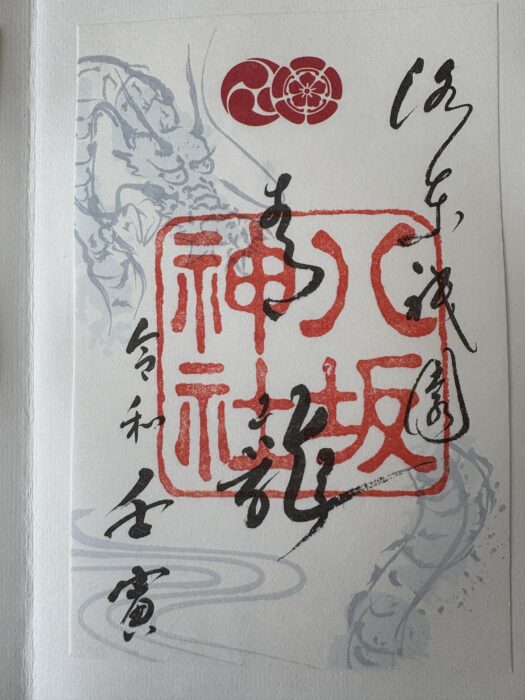 洛東祇園
青龍
八坂
神社
令和壬寅